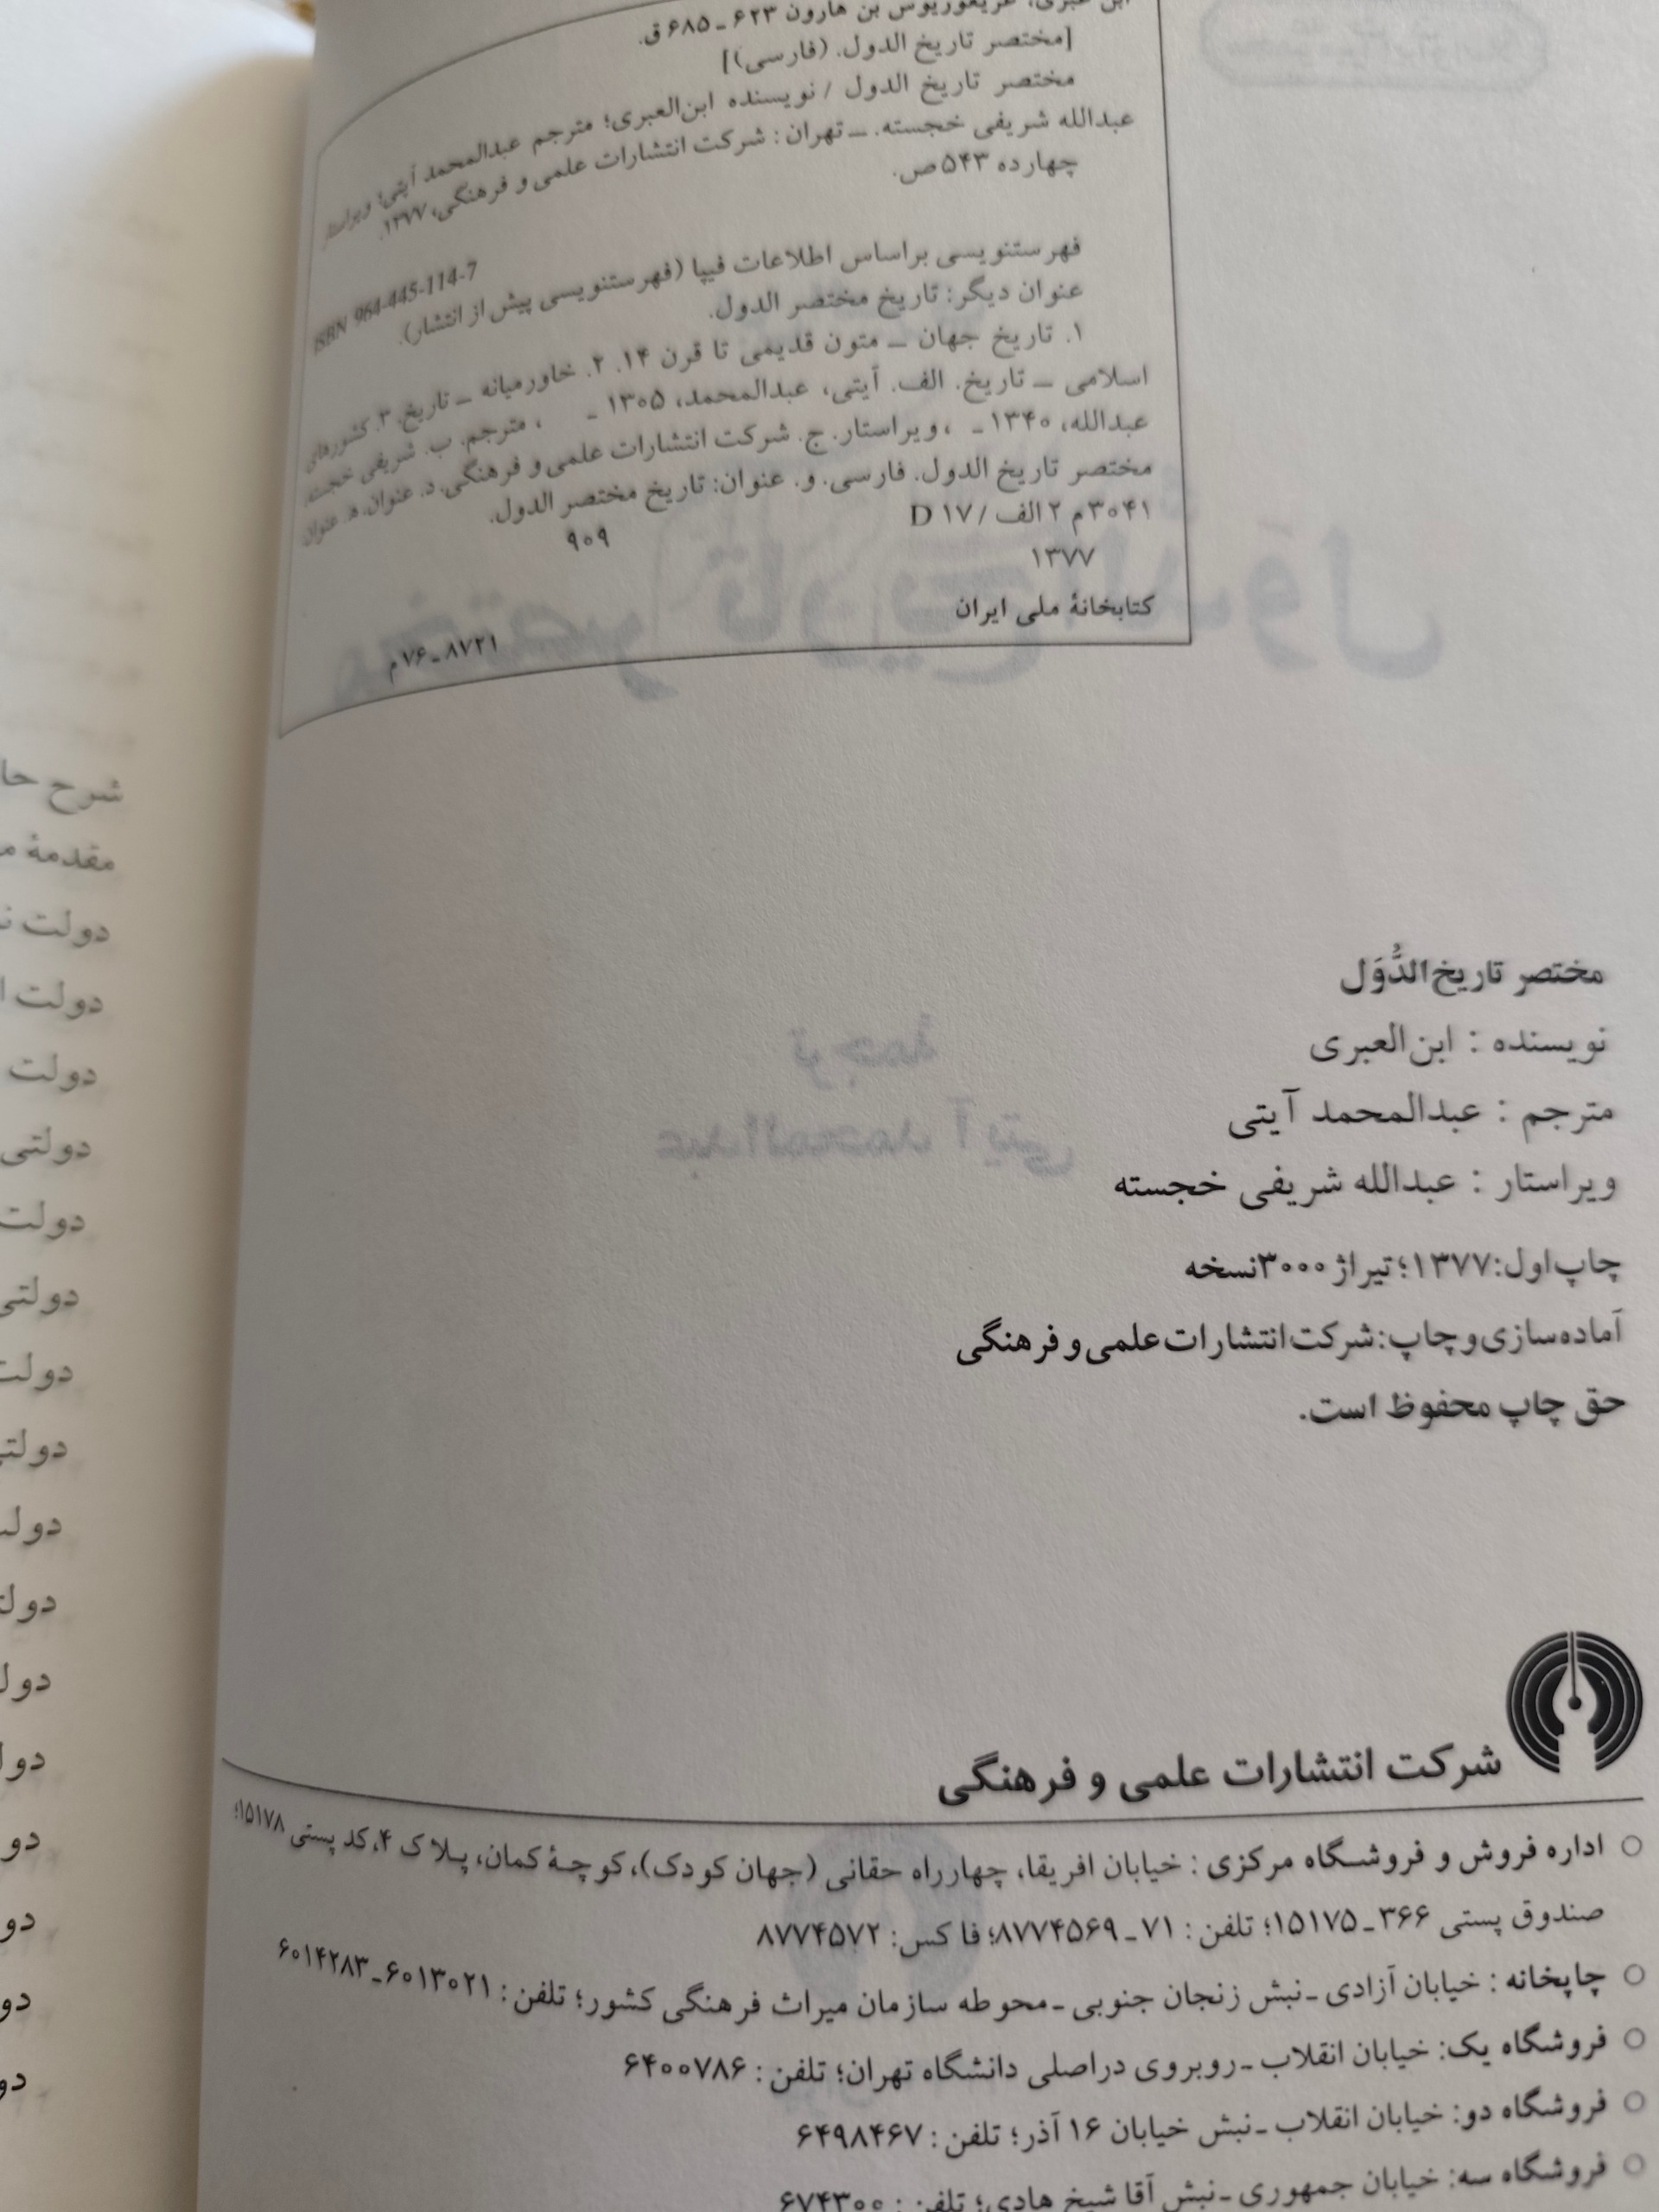 ابن عبری، غریغوریوس بن هارون ۶۲۳ ـ ۶۸۵ ق.
[مختصر تاریخ الدول. (فارسی)]
مختصر تاریخ الدول / نویسنده ابن‌العبری؛ مترجم عبدالمحمد آیتی؛ ویراستار
عبدالله شریفی خجسته. ـ تهران : شرکت انتشارات علمی و فرهنگی، ۱۳۷۷.
چهارده ۵۴۳ ص.
ISBN 964-445-114-7
فهرستنویسی براساس اطلاعات فیپا (فهرستنویسی پیش از انتشار).
عنوان دیگر: تاریخ مختصر الدول.
۱. تاریخ جهان ـ متون قدیمی تا قرن ۱۴. ۲. خاورمیانه ـ تاریخ. ۳. کشورهای
اسلامی ـ تاریخ. الف. آیتی، عبدالمحمد، ۱۳۰۵ ـ ، مترجم. ب. شریفی خجسته،
عبدالله، ۱۳۴۰ ـ ، ویراستار. ج. شرکت انتشارات علمی و فرهنگی. د. عنوان. ه. عنوان
مختصر تاریخ الدول. فارسی. و. عنوان: تاریخ مختصر الدول.
۳۰۴۱ م ۲ الف / D ۱۷
۹۰۹
۱۳۷۷
کتابخانهٔ ملی ایران
۸۷۲۱ ـ ۷۶ م
مختصر تاریخ‌الدُّوَل
نویسنده : ابن‌العبری
مترجم : عبدالمحمد آیتی
ویراستار : عبدالله شریفی خجسته
چاپ اول: ۱۳۷۷؛ تیراژ ۳۰۰۰ نسخه
آماده‌سازی و چاپ: شرکت انتشارات علمی و فرهنگی
حق چاپ محفوظ است.
شرکت انتشارات علمی و فرهنگی
○ اداره فروش و فروشگاه مرکزی : خیابان افریقا، چهارراه حقانی (جهان کودک)، کوچهٔ کمان، پلاک ۴، کد پستی ۱۵۱۷۸؛
صندوق پستی ۳۶۶ ـ ۱۵۱۷۵؛ تلفن : ۷۱ ـ ۸۷۷۴۵۶۹؛ فاکس: ۸۷۷۴۵۷۲
○ چاپخانه : خیابان آزادی ـ نبش زنجان جنوبی ـ محوطه سازمان میراث فرهنگی کشور؛ تلفن : ۶۰۱۳۰۲۱ ـ ۶۰۱۴۲۸۳
○ فروشگاه یک: خیابان انقلاب ـ روبروی دراصلی دانشگاه تهران؛ تلفن : ۶۴۰۰۷۸۶
○ فروشگاه دو: خیابان انقلاب ـ نبش خیابان ۱۶ آذر؛ تلفن : ۶۴۹۸۴۶۷
○ فروشگاه سه: خیابان جمهوری ـ نبش آقا شیخ هادی؛ تلفن : ۶۷۴۳۰۰
شرح
مقدمهٔ
دولت
دولت
دولت
دولتی
دولت
دولتی
دولت